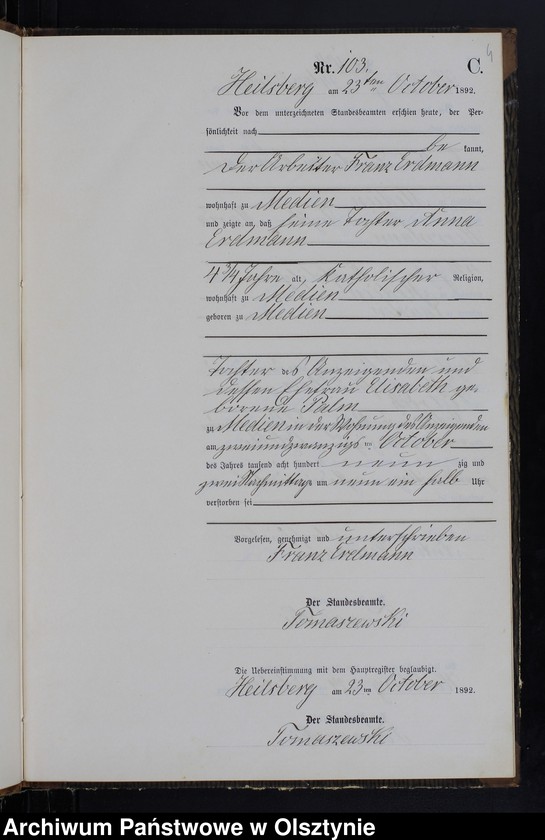 Nr. 103. C.
Heilsberg am 23ten October 1892.
Vor dem unterzeichneten Standesbeamten erschien heute, der Per-
sönlichkeit nach
be kannt,
der Arbeiter Franz Erdmann
wohnhaft zu Medien
und zeigte an, daß seine Tochter Anna
Erdmann
4 3/4 Jahre alt, katholischer Religion,
wohnhaft zu Medien
geboren zu Medien
Tochter des Anzeigenden und
dessen Ehefrau Elisabeth ge-
borene Palm
zu Medien in der Wohnung des Anzeigenden
am zweiundzwanzigsten October
des Jahres tausend acht hundert neun zig und
zwei Nachmittags um neun ein halb Uhr
verstorben sei
Vorgelesen, genehmigt und unterschrieben
Franz Erdmann
Der Standesbeamte.
Tomaszewski
Die Uebereinstimmung mit dem Hauptregister beglaubigt.
Heilsberg am 23ten October 1892.
Der Standesbeamte.
Tomaszewski
Archiwum Państwowe w Olsztynie